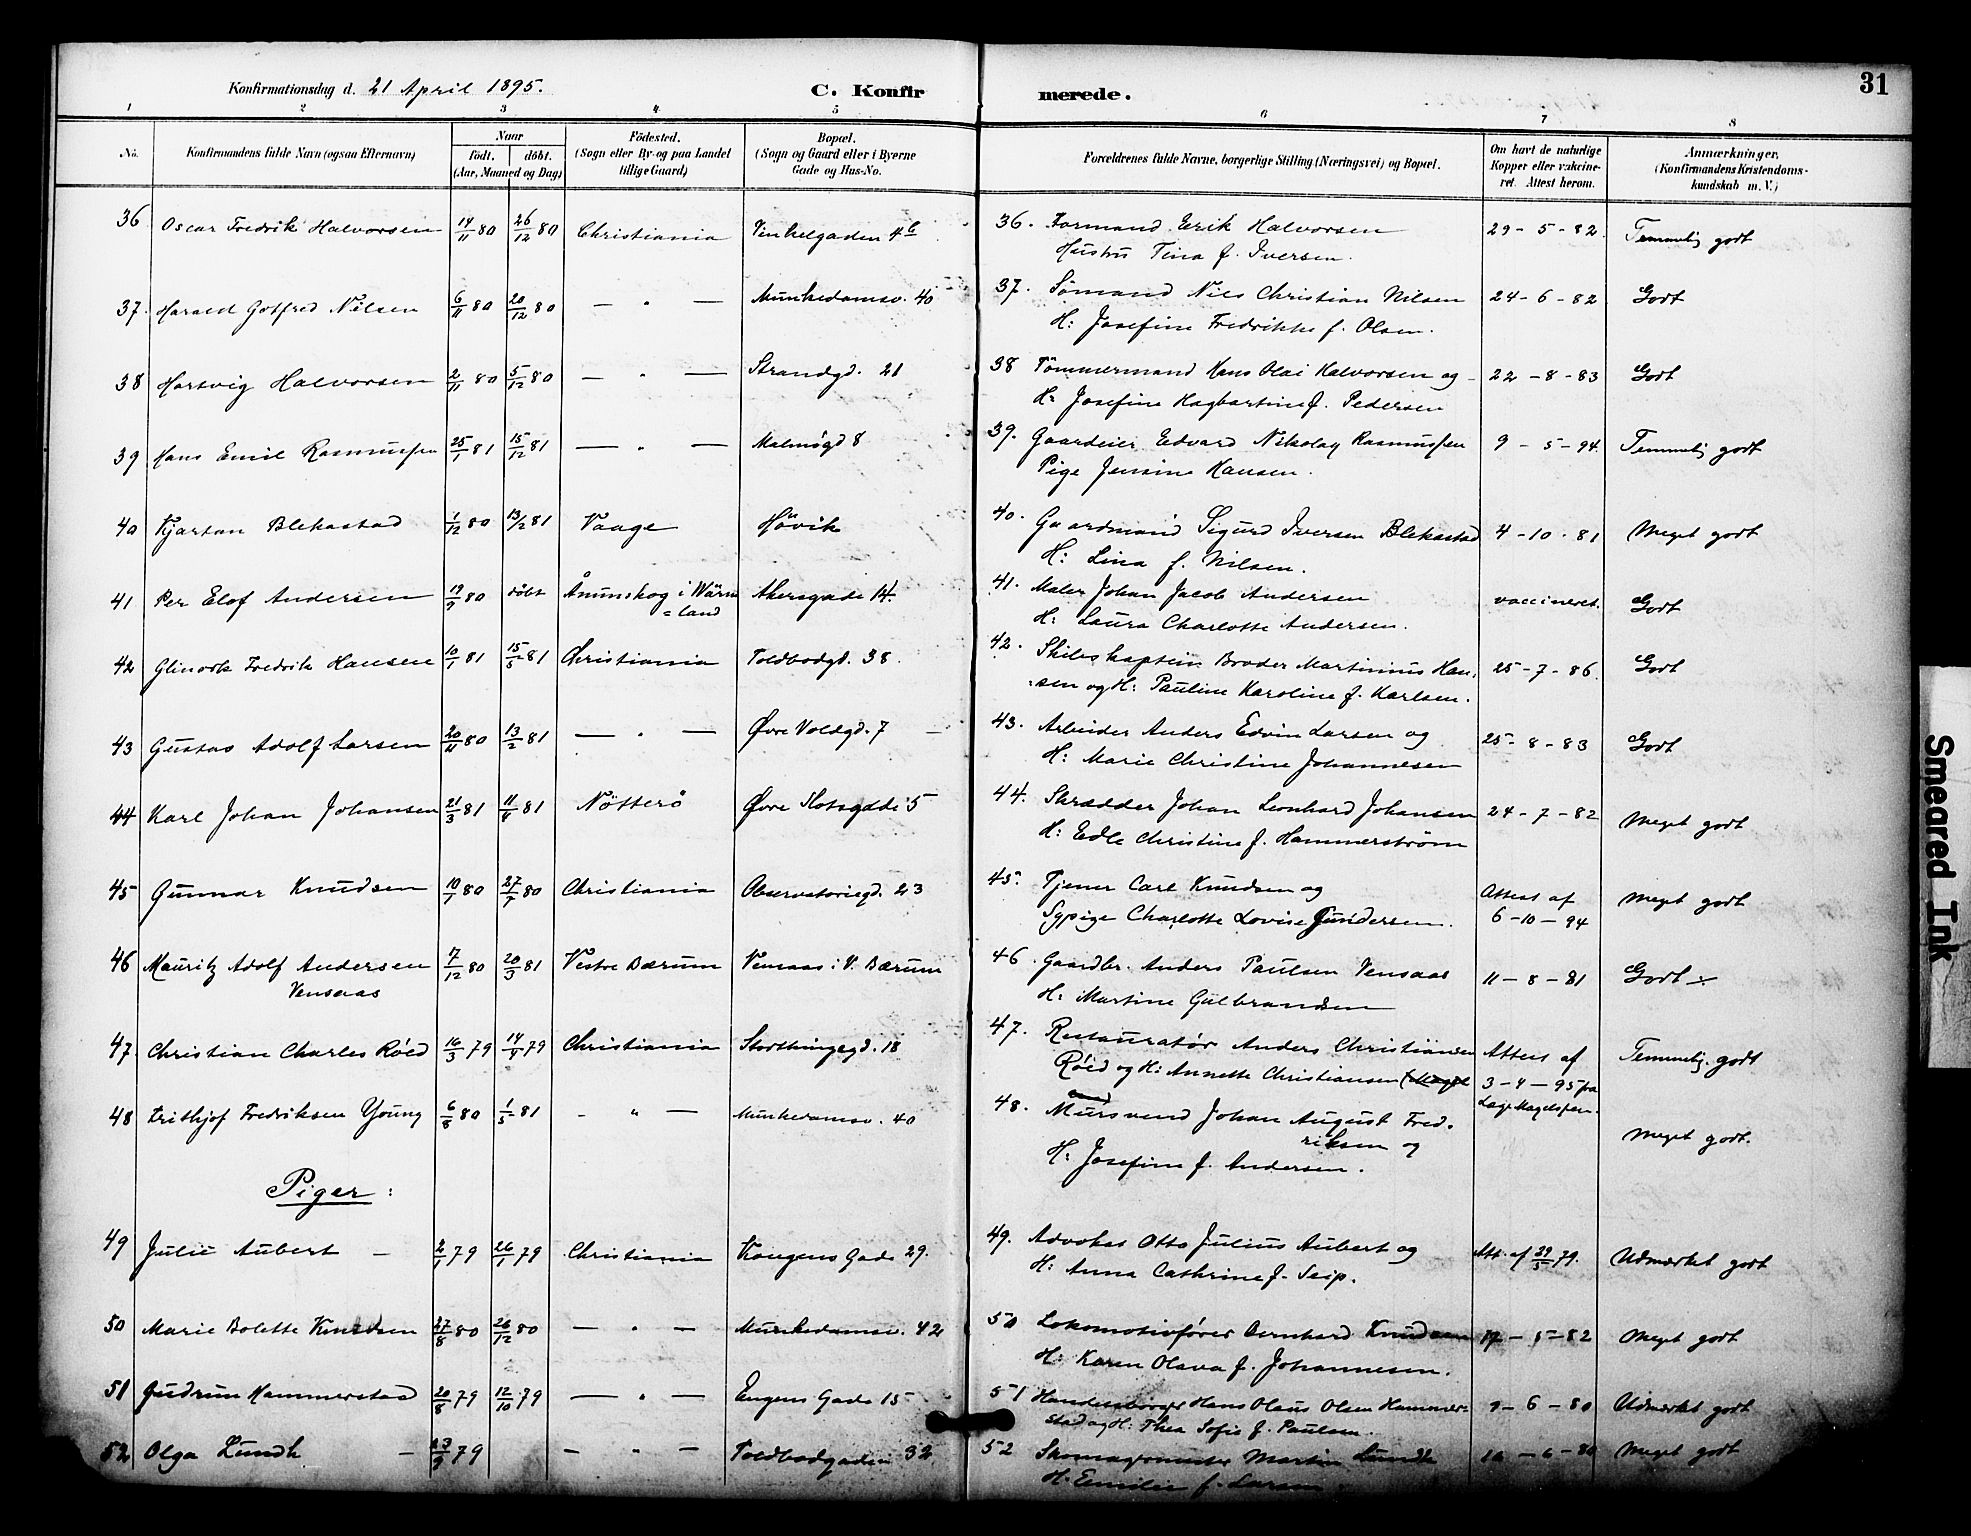 31
Konfirmationsdag d. 21 April 1895.
C. Konfirmerede.
1 2 3 4 5 6 7 8
No.
Konfirmandens fulde Navn (ogsaa Efternavn)
Naar
födt. döbt.
(Aar, Maaned og Dag)
Födested.
(Sogn eller By og paa Landet
tillige Gaard)
Bopæl.
(Sogn og Gaard eller i Byerne
Gade og Hus-No.
Forældrenes fulde Navne, borgerlige Stilling (Næringsvei) og Bopæl.
Om havt de naturlige
Kopper eller vakcine-
ret. Attest herom.
Anmærkninger,
(Konfirmandens Kristendoms-
kundskab m. V.)
36 Oscar Fredrik Halvorsen 14/11 80 26/12 80 Christiania Vinkelgaden 4b 36. Formand Erik Halvorsen 29-5-82. Temmelig godt
Hustru Tina f. Iversen.
37. Harald Gotfred Nilsen 6/11 80 20/12 80 — " — Munkedamsv. 40 37. Sömand Nils Christian Nilsen 24-6-82 Godt
H: Josefine Fredrikke f. Olsen.
38 Hartvig Halvorsen 2/11 80 5/12 80 — " — Strandgd. 21 38 Tömmermand Hans Olai Halvorsen og 22-8-83 Godt
H: Josefine Hagbartine f. Pedersen
39 Hans Emil Rasmussen 25/1 81 15/12 81 — " — Malmögd 8 39. Gaardeier Edvard Nikolay Rasmussen 9-5-94. Temmelig godt
Pige Jensine Hansen.
40 Kjartan Blekastad 1/12 80 13/2 81 Vaage Hövik 40. Gaardmand Sigurd Iversen Blekastad 4-10-81 Meget godt
H: Lina f. Nilsen.
41 Per Elof Andersen 19/9 80 döbt Ånimskog i Wärm Akersgade 14. 41. Maler Johan Jacob Andersen vaccineret. Godt
=land
H: Laura Charlotte Andersen.
42 Fredrik Hansen 10/1 81 15/5 81 Christiania Toldbodgd. 38. 42. Skibskaptein Broder Martinius Han- 25-7-86. Godt
sen og H: Pauline Karoline f. Karlsen.
43 Gustav Adolf Larsen 20/11 80 13/2 81 — " — Øvre Voldgd. 7 43. Arbeider Anders Edvin Larsen og 25-8-83 Godt
H: Marie Christine Johannesen
44 Karl Johan Johansen 21/3 81 11/4 81 Nötterö Øvre Slotsgade 5 44. Skrædder Johan Leonhard Johansen 24-7-82 Meget godt
H: Edle Christine f. Hammerström
45 Gunnar Knudsen 10/1 80 27/7 80 Christiania Observatoriegd. 23 45. Tjener Carl Knudsen og Attest af Meget godt
Sypige Charlotte Lovise Gundersen. 6-10-94
46 Mauritz Adolf Andersen 7/12 80 20/3 81 Vestre Bærum Vensaas i V. Bærum 46. Gaardbr. Anders Paulsen Vensaas 11-8-81 Godt
Vensaas
H: Martine Gulbrandsen
47. Christian Charles Röed 16/3 79 14/4 79 Christiania Storthingsgd. 18 47. Restauratør Anders Christiansen Attest af Temmelig godt
Röed og H: Annette Christiansen 3-4-95 fra
Læge Magelssen.
48 Frithjof Fredriksen Young 6/8 80 1/5 81 — " — Munkedamsv. 40 48. Mursvend Johan August Fred- Meget godt.
riksen og
H: Josefine f. Andersen.
Piger:
49 Julie Aubert 2/1 79 26/1 79 Christiania Kongens Gade 29. 49. Advokat Otto Julius Aubert og Att. af 29/5 79. Udmærket godt
H: Anna Cathrine f. Seip.
50 Marie Bolette Knudsen 27/8 80 26/12 80 — " — Munkedamsv. 42 50 Lokomotivfører Bernhard Knudsen 17-5-82 Meget godt
H: Karen Olava f. Johannesen.
51 Gudrun Hammerstad 20/8 79 12/10 79 — " — Eugens Gade 15 51 Handelsborger Hans Olaus Olsen Hammer- 9-6-80 Udmærket godt
stad og H: Thea Sofie f. Paulsen.
52 Olga Lundh 23/9 79 — " — Toldbodgaden 32 52 Skomagermester Martin Lundh 16-6-80 Meget godt
H: Emilie f. Larsen.
Smeared Ink